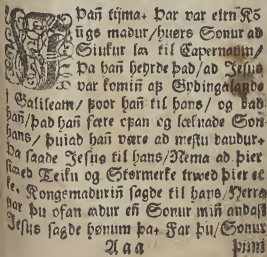 Þañ tijma. Þar var eirn Ko
ũgs madur / huers Sonur ad
Siukur la til Capernaum /
Þa hañ heyrde þad / ad Jesus
var komiñ aß Gydingalande
i Galileam / ßoor hañ til hans / og bad
hañ / Þad hañ fære ofan og læknade Son
hans / þuiad hañ være ad mestu daudur.
Þa sagde Jesus til hans / Nema ad þier
siaed Teikn og Stormerke trued þier ei
ke. Kongsmadurin sagde til hans / Herra
far þu ofan adur eñ Sonur miñ andast
Jesus sagde honum þa. Far þu / Sonur
Aaa þinn